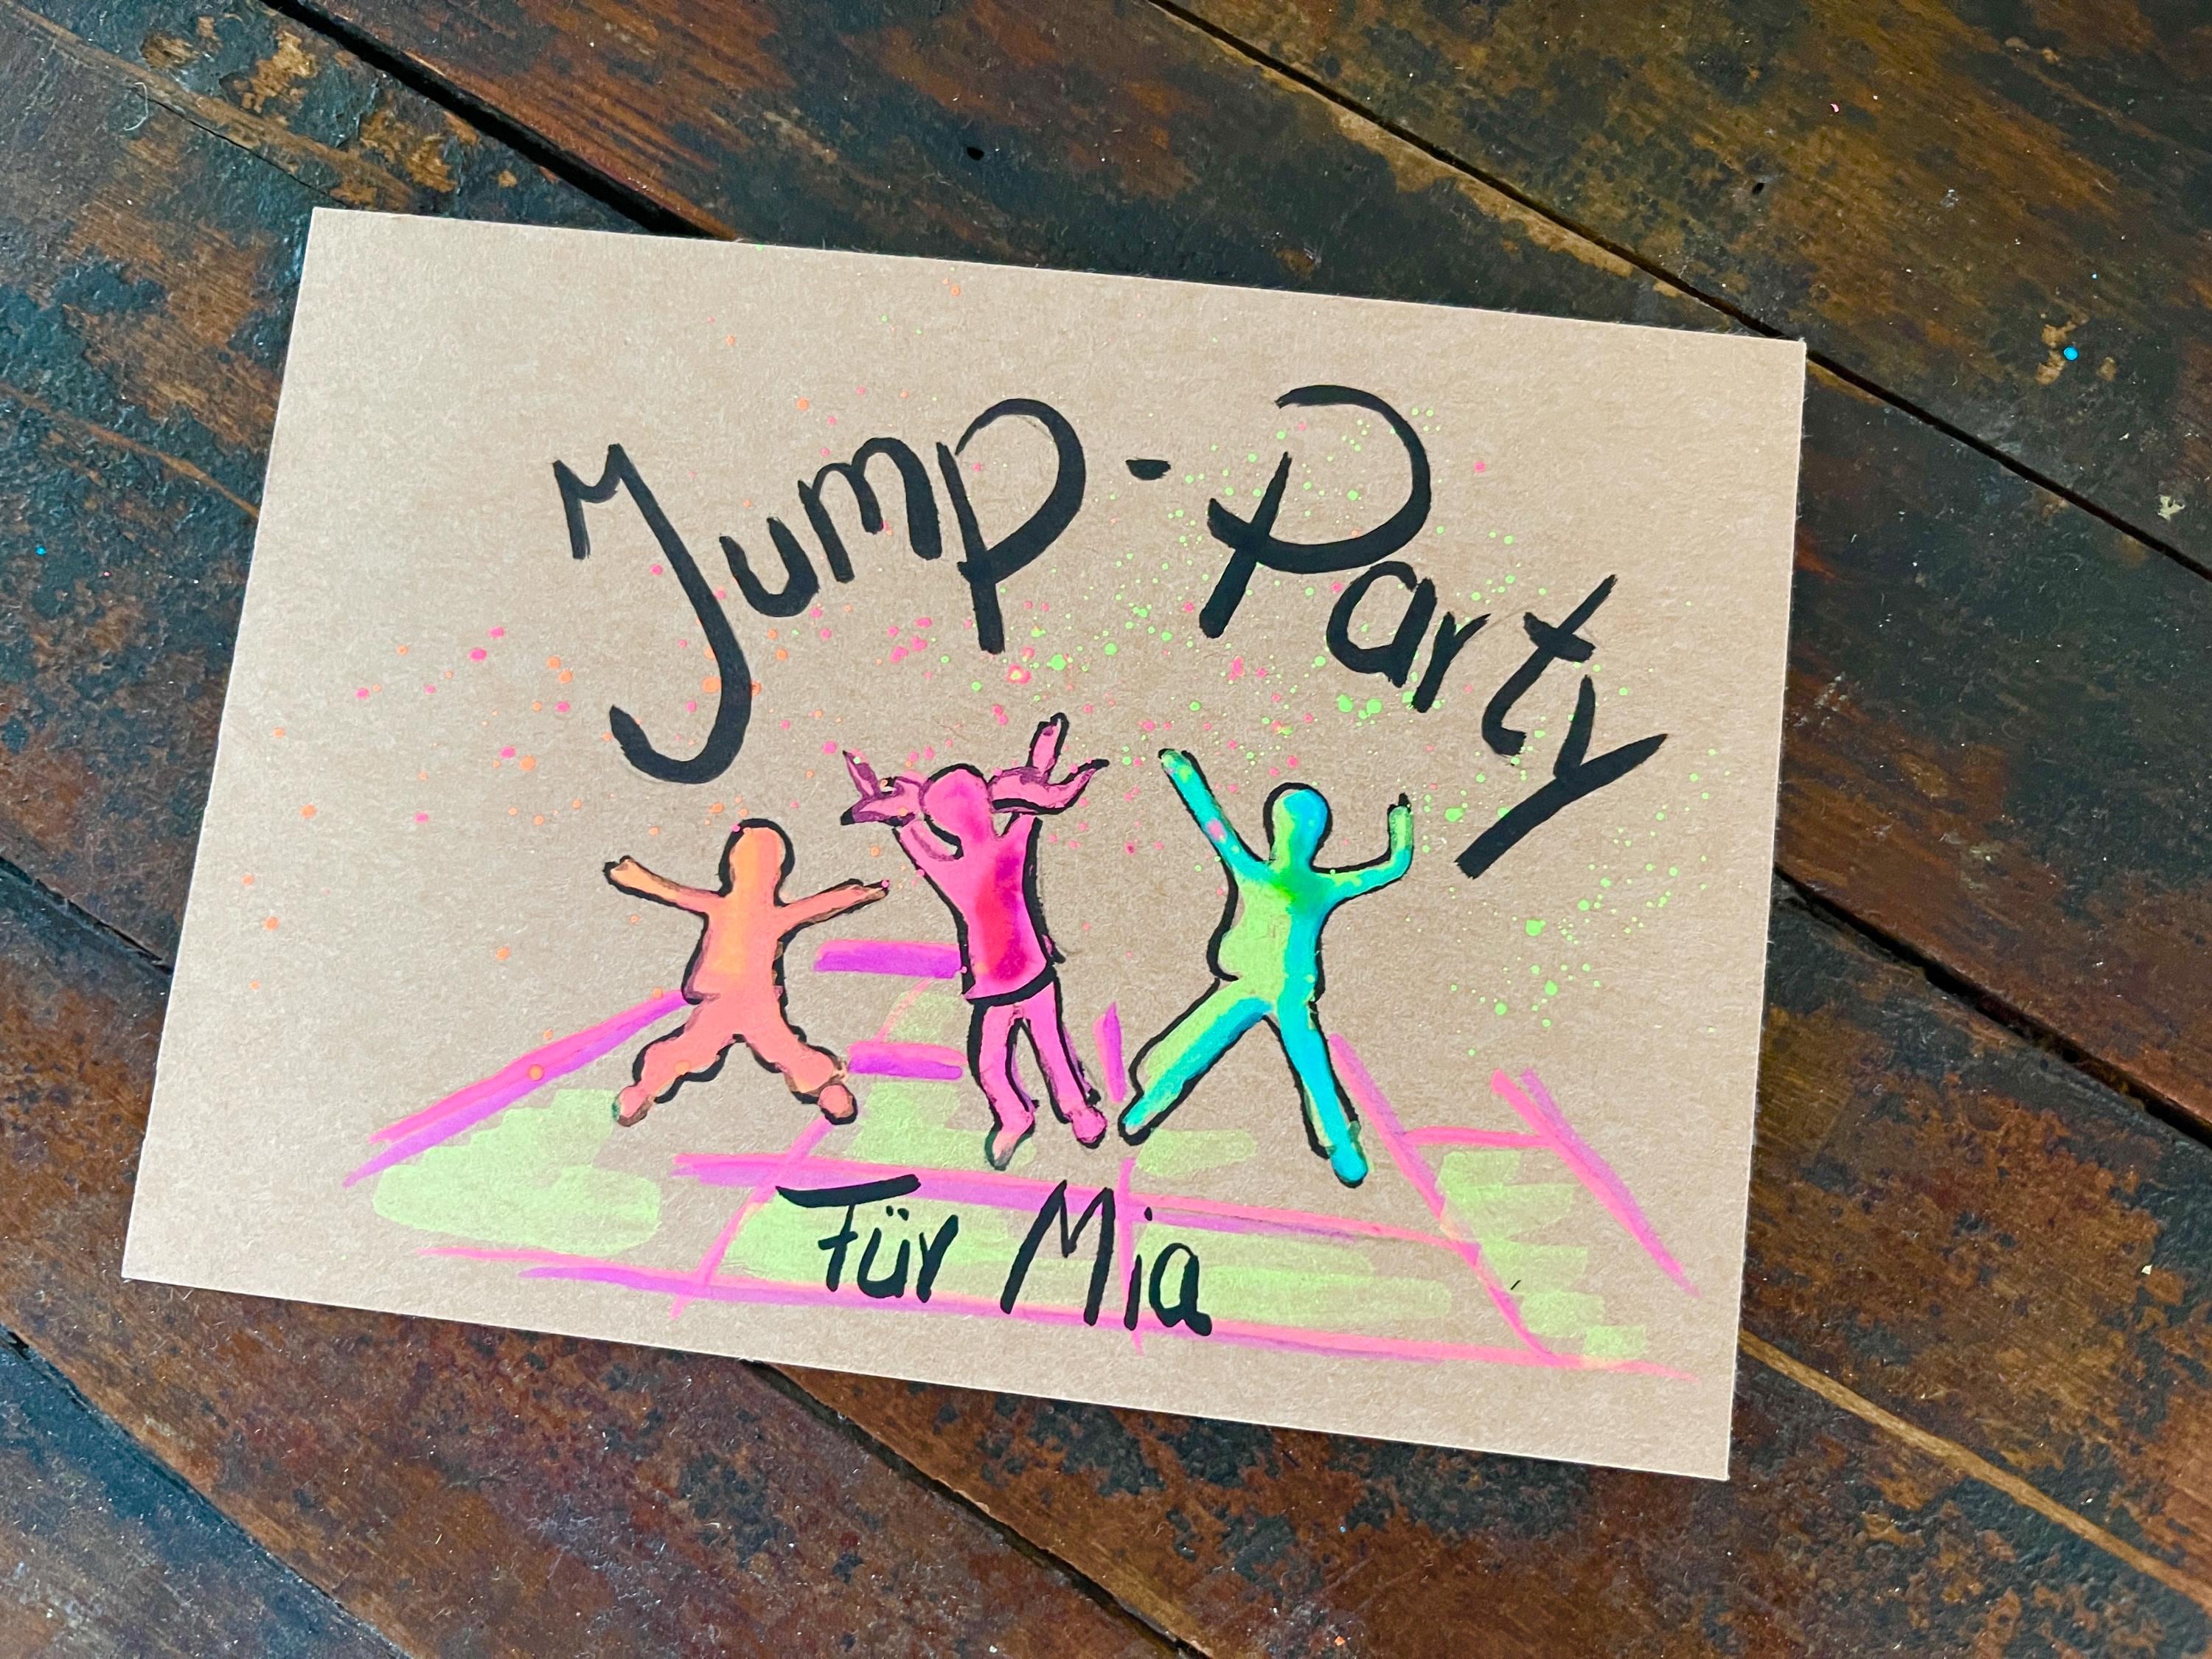 Jump-Party
Für Mia